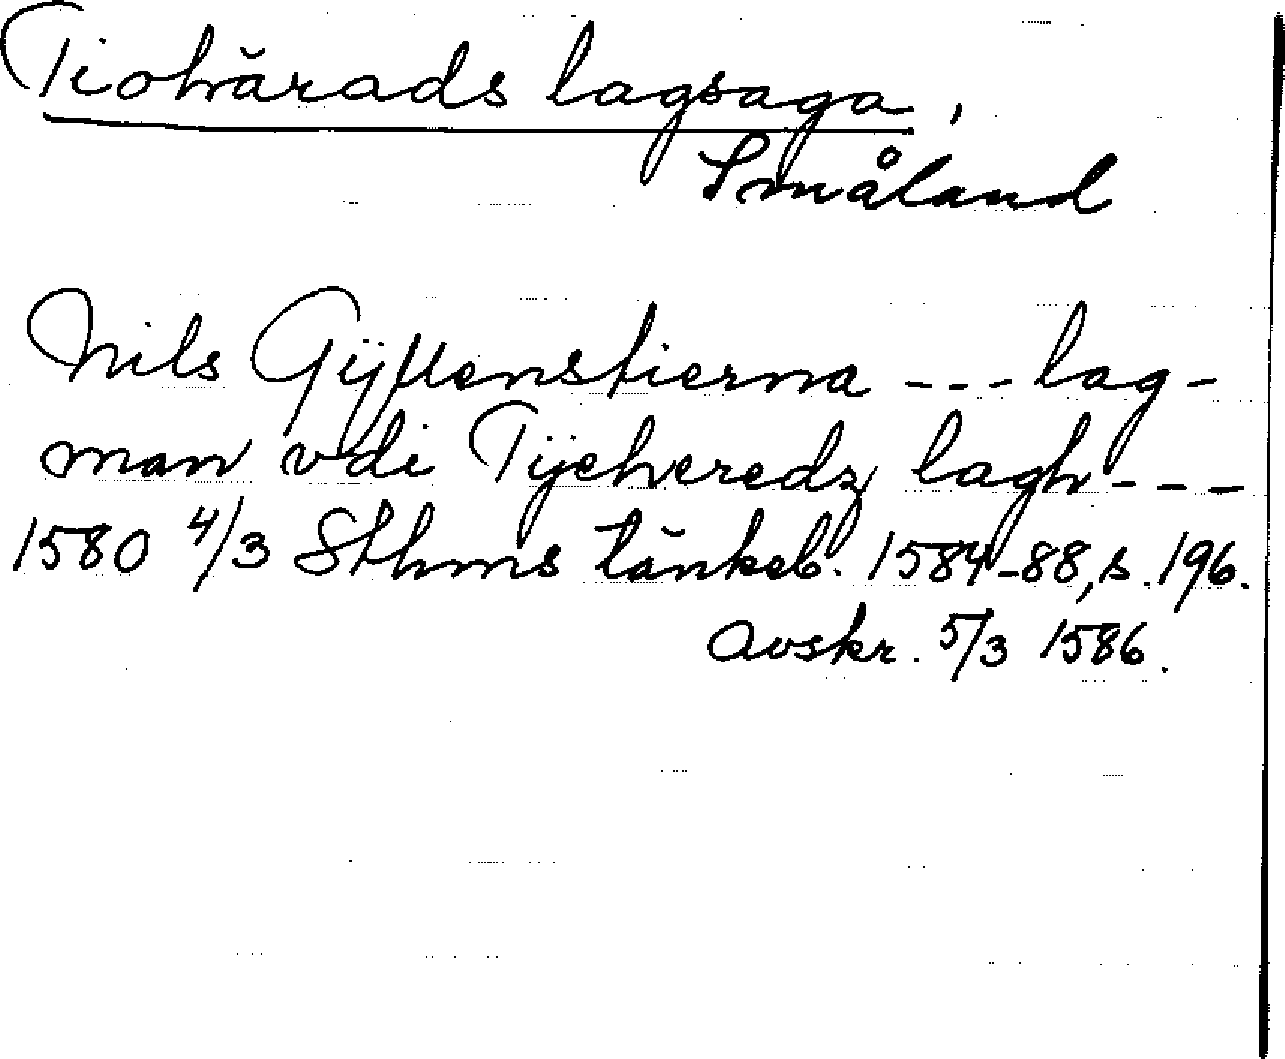 Tiohärads lagsaga,
Småland
Nils Gÿllenstierna --- lag-
man vdi Tÿeheredz lagh---
1580 4/3 Sthms tänkeb. 1584-88, s. 196.
Avskr. 5/3 1586.